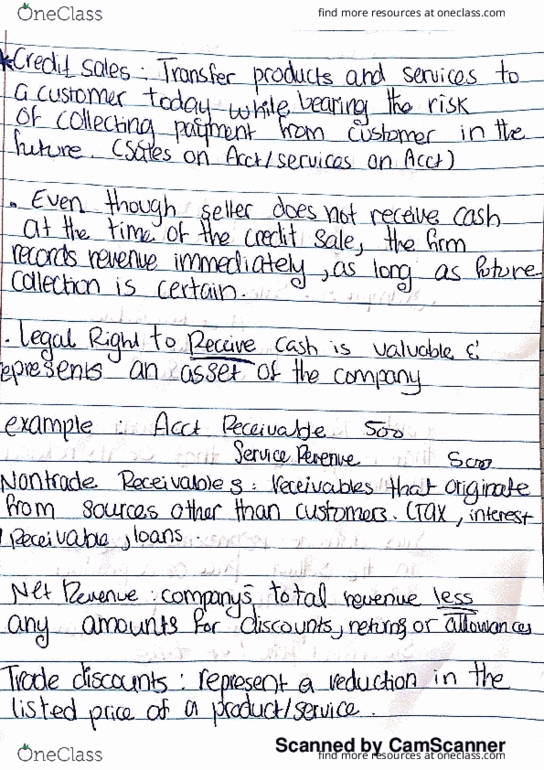 OneClass
find more resources at oneclass.com
*Credit sales: Transfer products and services to
a customer today while bearing the risk
of collecting payment from customer in the
future. (Sales on Acct/services on Acct)
. Even though seller does not receive cash
at the time of the credit sale, the firm
records revenue immediately, as long as future
collection is certain.
. Legal Right to Receive cash is valuable &
epresents an asset of the company
example : Acct Receivable 500
Service Revenue 500
Nontrade Receivables: receivables that originate
from sources other than customers. (Tax, interest
Receivable, loans
Net Revenue: company's total revenue less
any amounts for discounts, returns or allowances
Trade discounts: represent a reduction in the
listed price of a product/service.
Scanned by CamScanner
OneClass
find more resources at oneclass.com